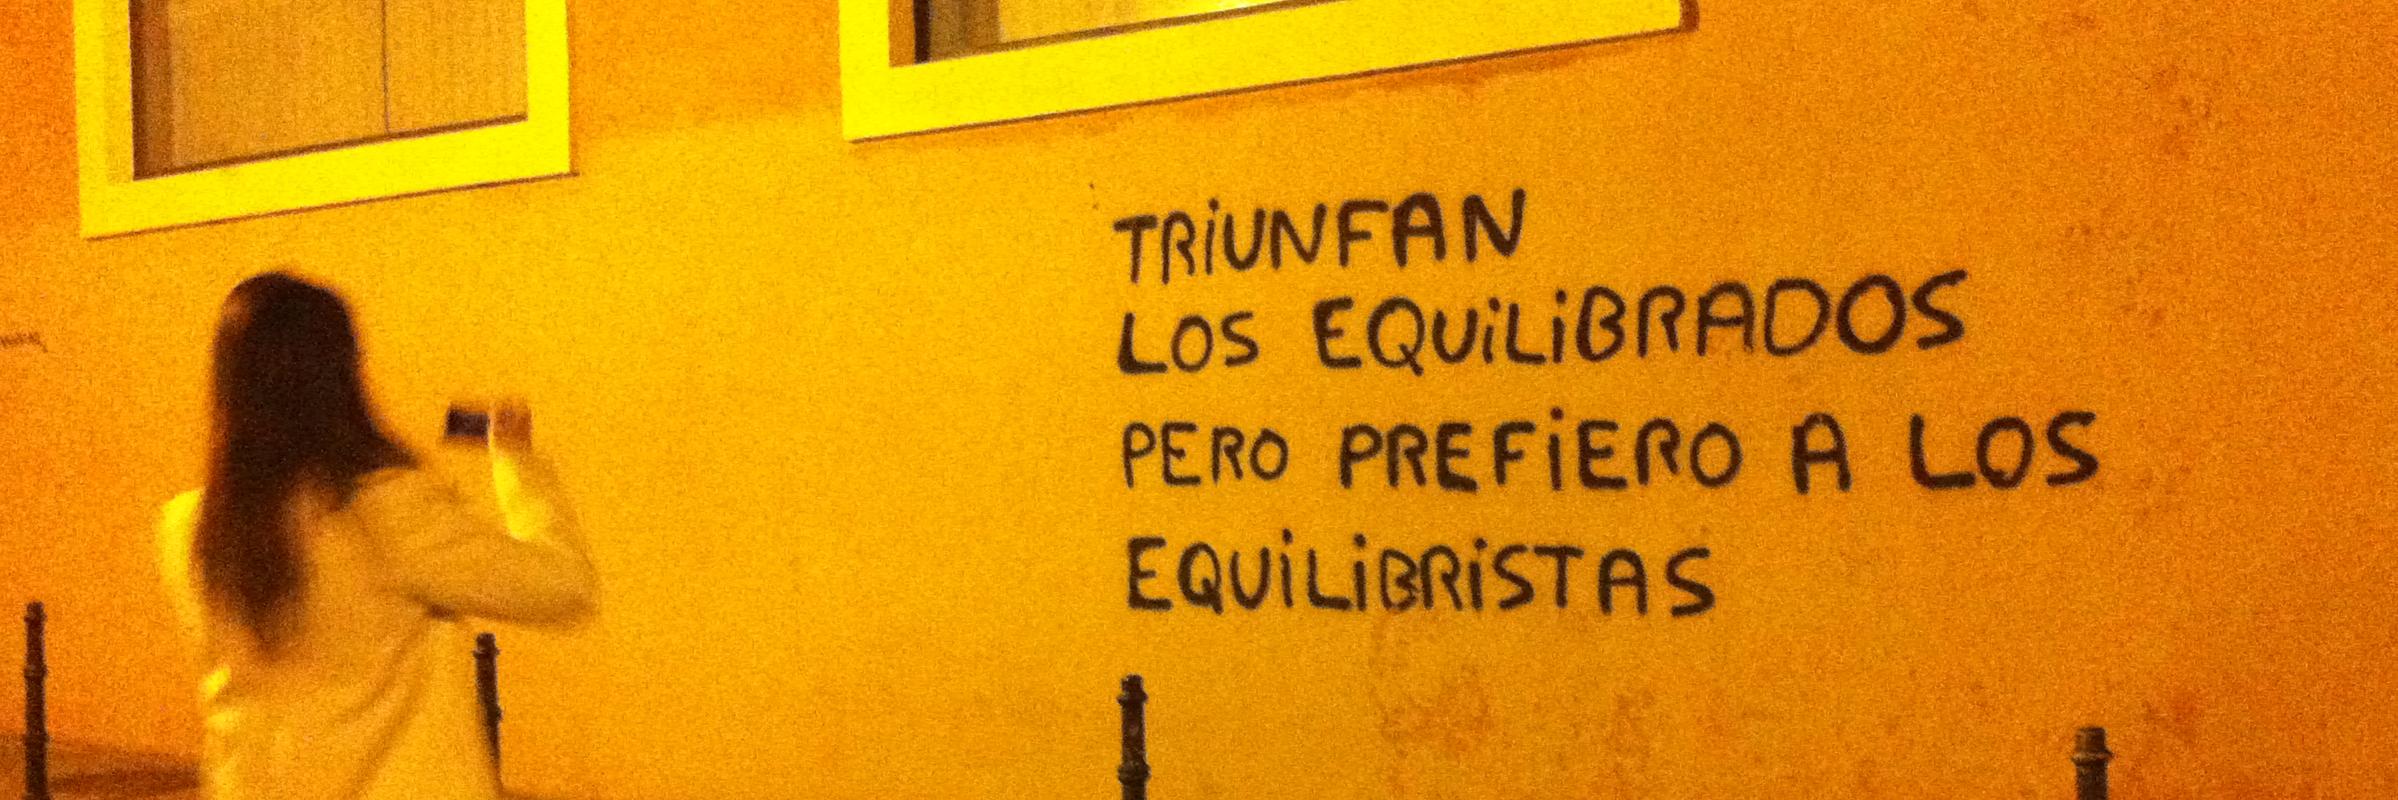 TRiUNFAN
LOS EQUiLiBRADOS
PERO PREFiERO A LOS
EQUiLiBRiSTAS